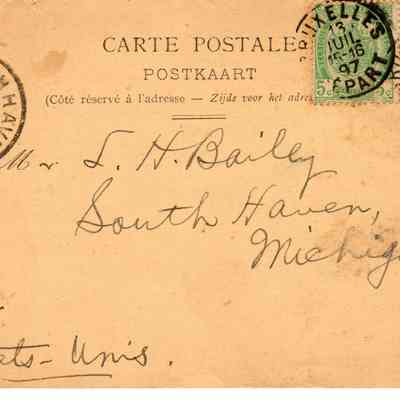 CARTE POSTALE
POSTKAART
(Côté réservé à l'adresse — Zijde voor het adres
BRUXELLES
13
JUIL
15-16
97
DEPART
5
HAV
Mr L. H. Bailey
South Haven,
Michig
ats-Unis.